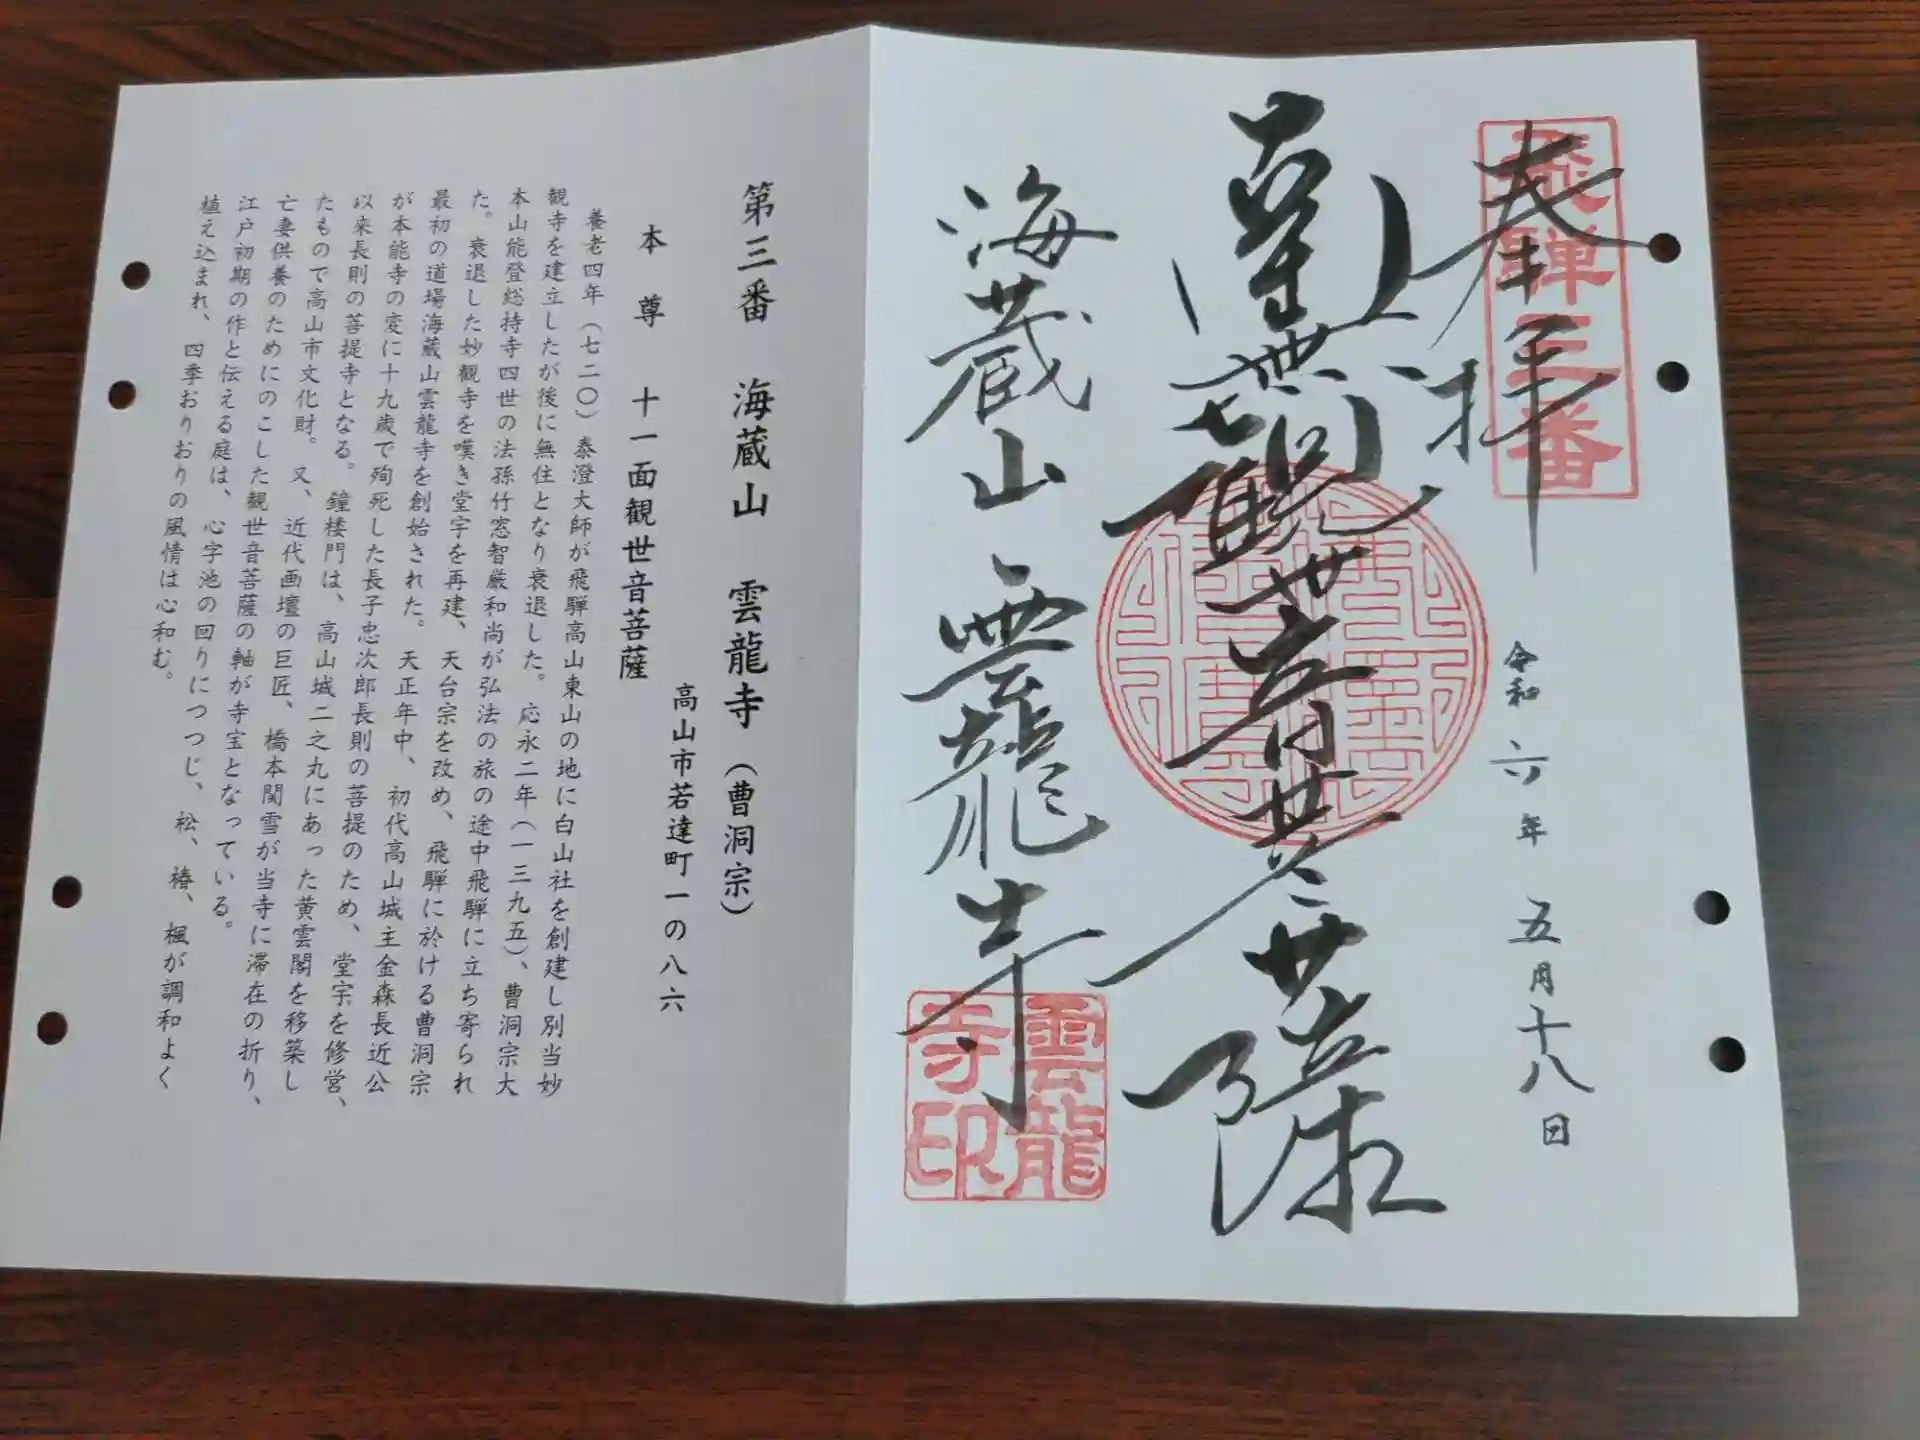 奉拝
飛騨三番
令和六年 五月十八日
南無観世音菩薩
海蔵山 雲龍寺
雲龍寺印
第三番 海蔵山 雲龍寺(曹洞宗)
高山市若達町一の八六
本尊 十一面観世音菩薩
養老四年(七二〇)泰澄大師が飛騨高山東山の地に白山社を創建し別当妙
観寺を建立したが後に無住となり衰退した。応永二年(一三九五)、曹洞宗大
本山能登総持寺四世の法孫竹窓智厳和尚が弘法の旅の途中飛騨に立ち寄られ
た。衰退した妙観寺を嘆き堂宇を再建、天台宗を改め、飛騨に於ける曹洞宗
最初の道場海蔵山雲龍寺を創始された。天正年中、初代高山城主金森長近公
が本能寺の変に十九歳で殉死した長子忠次郎長則の菩提のため、堂宇を修営、
以来長則の菩提寺となる。鐘楼門は、高山城二之丸にあった黄雲閣を移築し
たもので高山市文化財。又、近代画壇の巨匠、橋本関雪が当寺に滞在の折り、
亡妻供養のためにのこした観世音菩薩の軸が寺宝となっている。
江戸初期の作と伝える庭は、心字池の回りにつつじ、松、椿、楓が調和よく
植え込まれ、四季おりおりの風情は心和む。